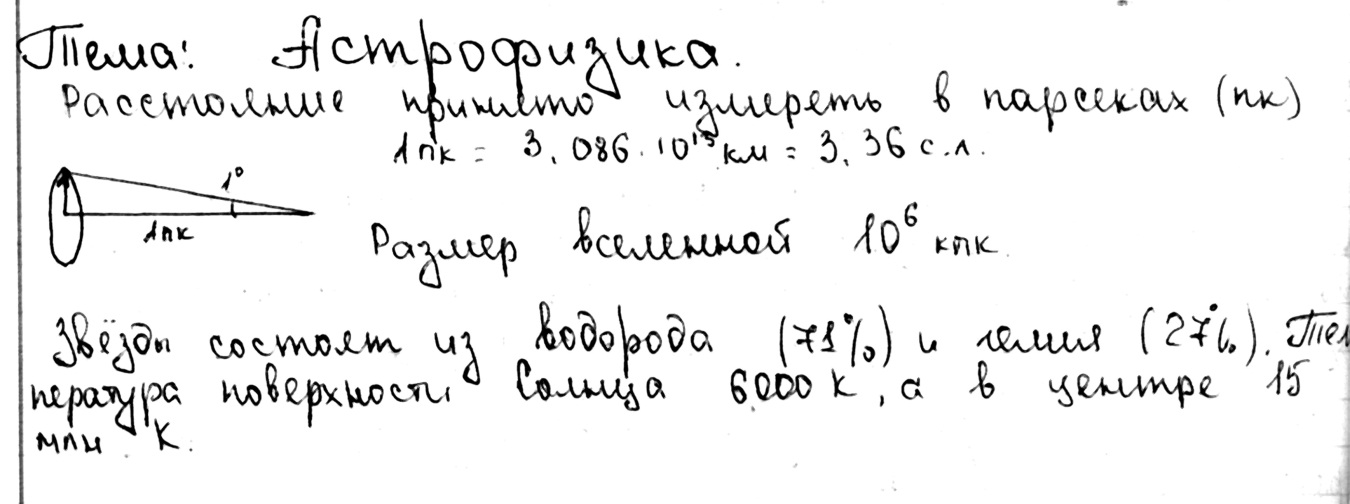 Тема: Астрофизика.
Расстояние принято измереть в парсеках (пк)
1пк = 3,086·10¹³км = 3,36 с.л.
1°
1пк
Размер вселенной 10⁶ кпк.
Звёзды состоят из водорода (71%) и гелия (27%). Тем
пература поверхности Солнца 6000 К, а в центре 15
млн К.